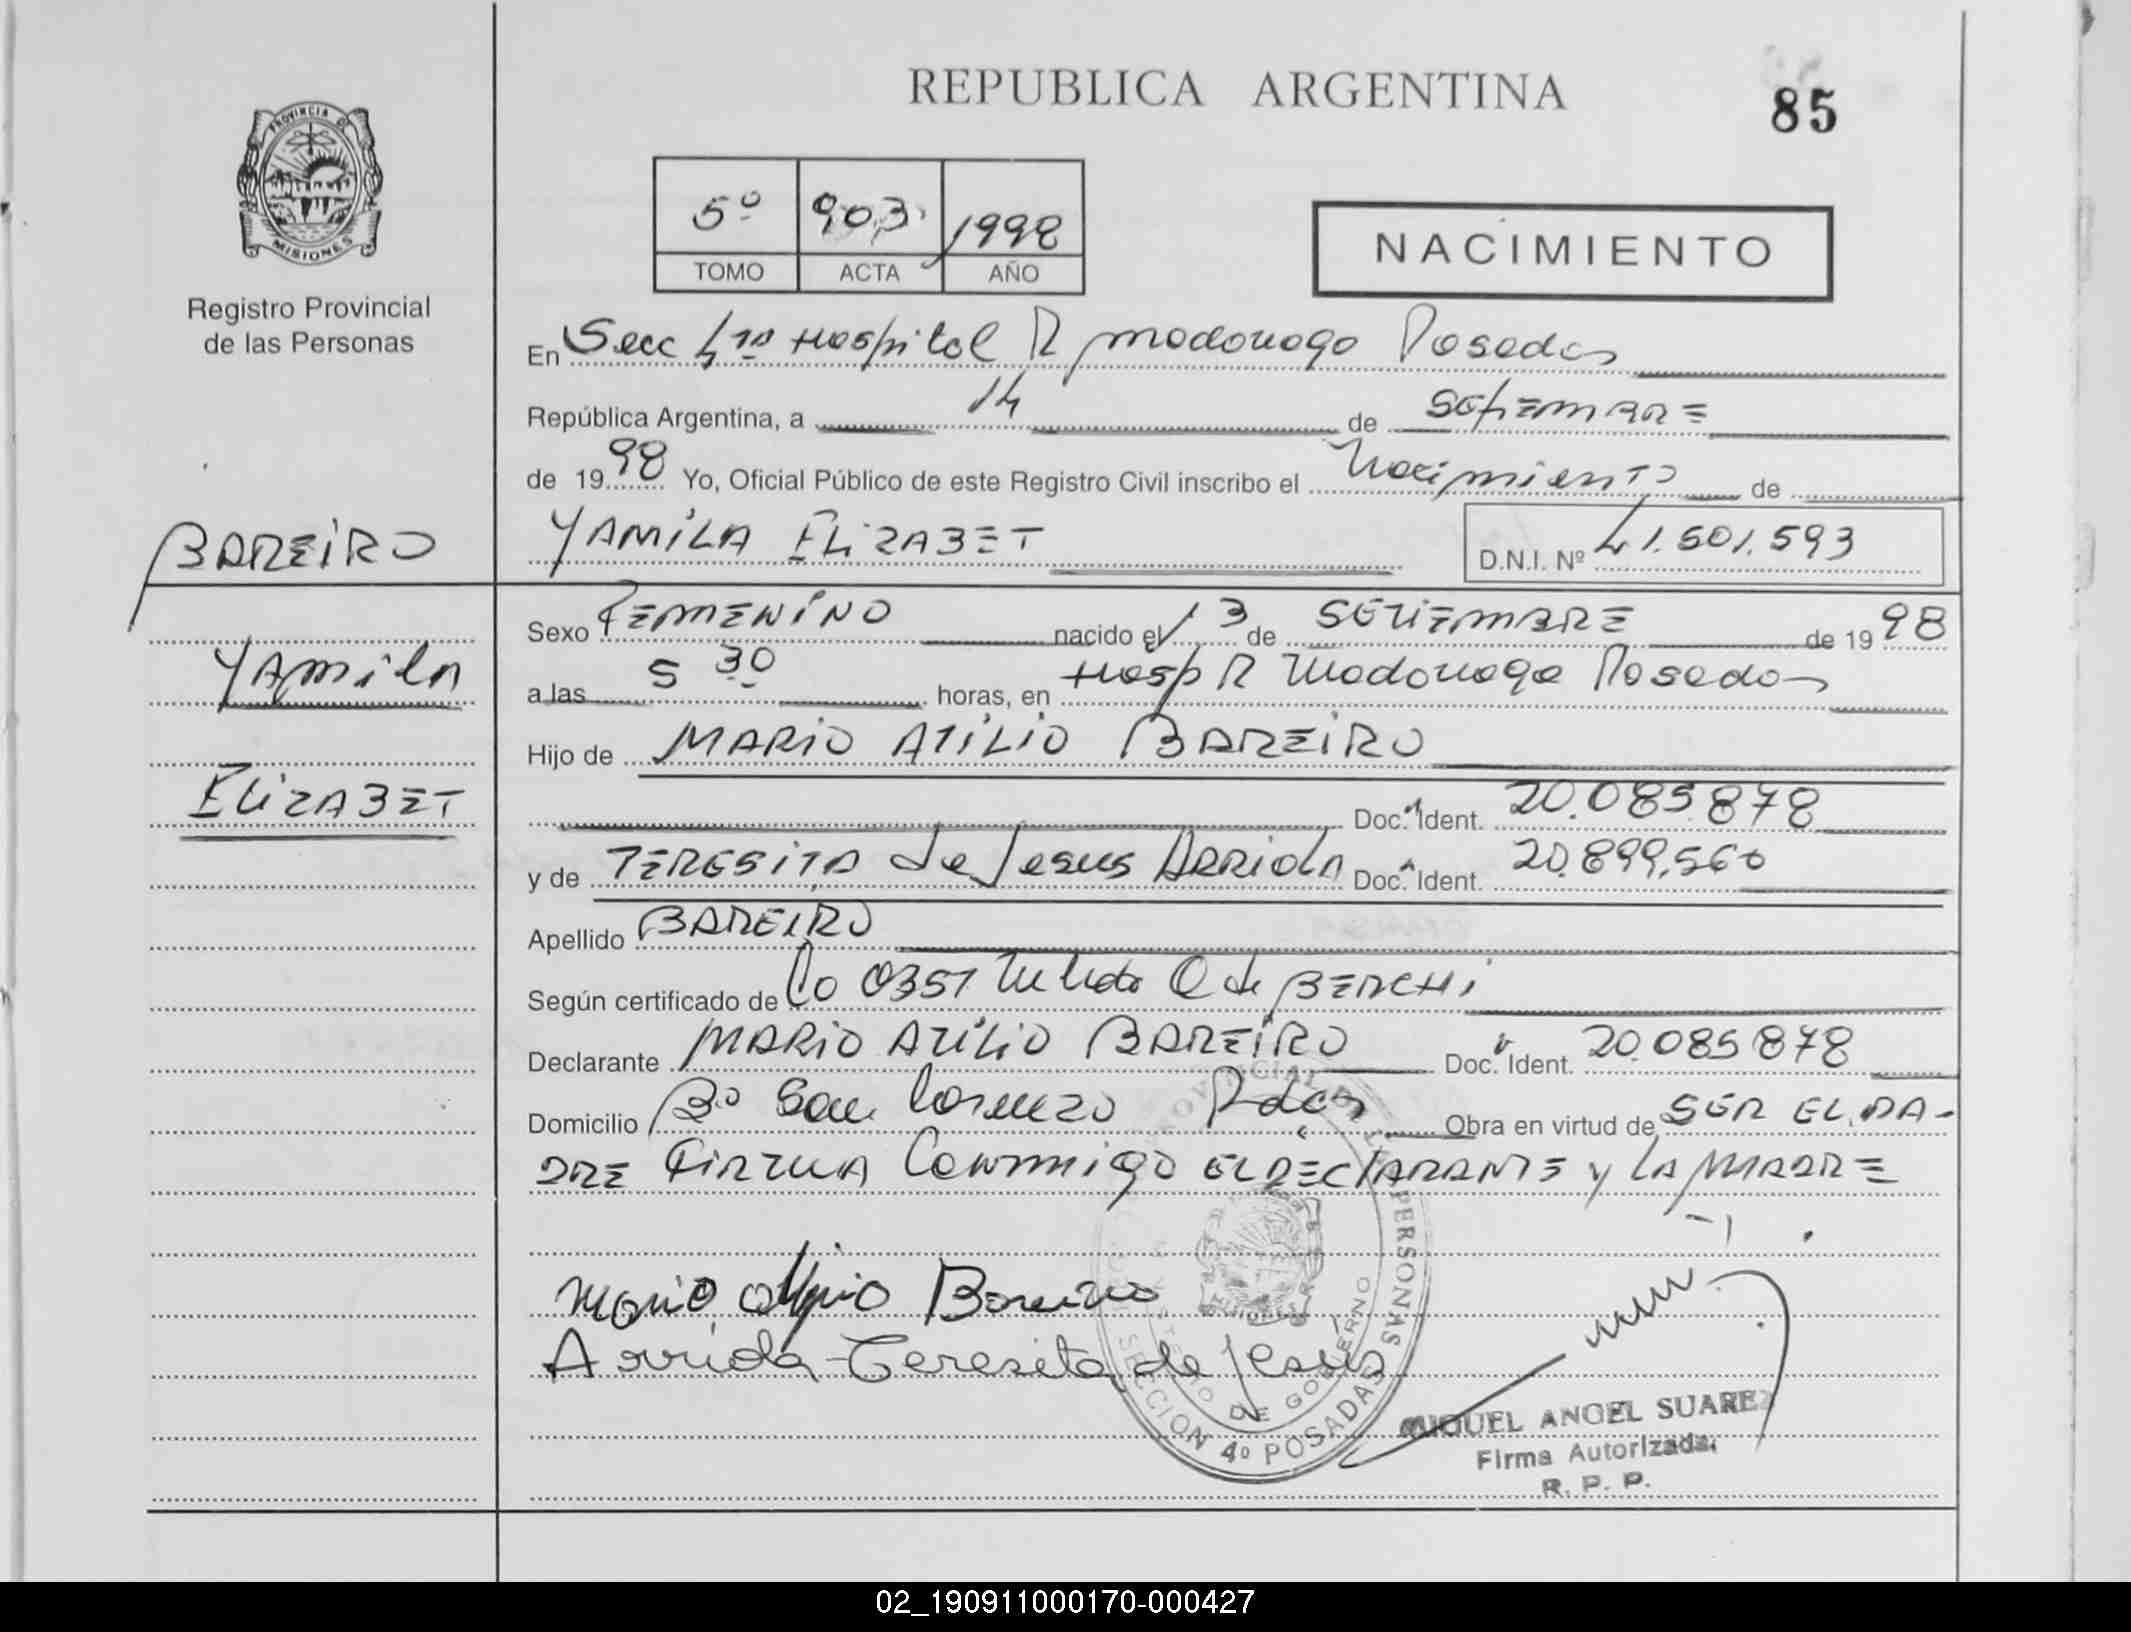 REPUBLICA ARGENTINA
85
PROVINCIA DE
MISIONES
Registro Provincial
de las Personas
5º 903 1998
TOMO ACTA AÑO
NACIMIENTO
En Secc 4ta Hospital R madariaga Posadas
República Argentina, a 14 de SEtiEMBRE
de 1998 Yo, Oficial Público de este Registro Civil inscribo el Nacimiento de
BAREIRO
YAMiLA ELiZABET
D.N.I. Nº 41.501.593
Sexo FEMENiNO nacido el 13 de SETiEMBRE de 1998
YAmilA
a las 5 30 horas, en Hosp R Madariaga Posadas
Hijo de MARiO ATiLiO BAREiRO
ELiZABET
Doc. Ident. 20.085.878
y de TERESiTA de Jesus ARRiolA Doc. Ident. 20.899.560
Apellido BAREIRO
Según certificado de Q de BERCHi
Declarante MARiO ATiLiO BAREiRO Doc. Ident. 20.085878
Domicilio Bº San Lorenzo Pdas Obra en virtud de SER EL PA-
DRE FiRMA Conmmigo EL DEClARANTE y LA MADRE
Mario Bareiro
Arriola Teresita de Jesús
PROVINCIAL DE LAS PERSONAS
MINISTERIO DE GOBIERNO
SECCION 4º POSADAS
MIGUEL ANGEL SUAREZ
Firma Autorizada
R. P. P.
02_190911000170-000427